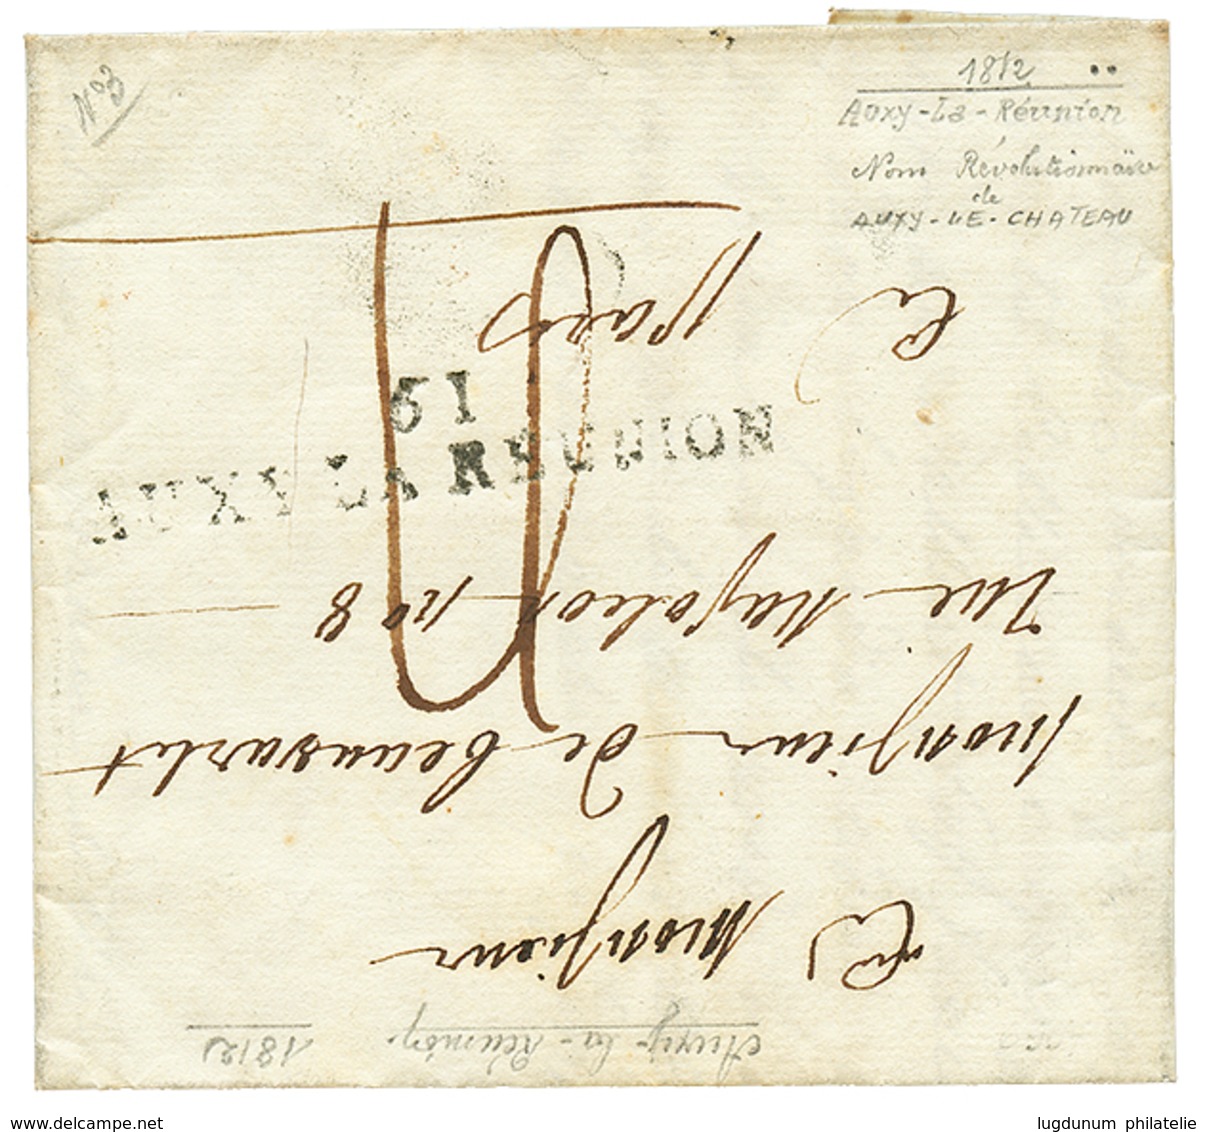 N° 3
1812
Auxy-La-Réunion
Nom Révolutionnaire
de
AUXY-LE-CHATEAU
61
AUXY LA REUNION
A Monsieur
Monsieur de Beauvarlet
Rue Napoleon n° 8
A paris
Auxy-la-Réunion.
1812
www.delcampe.net
lugdunum philatelie